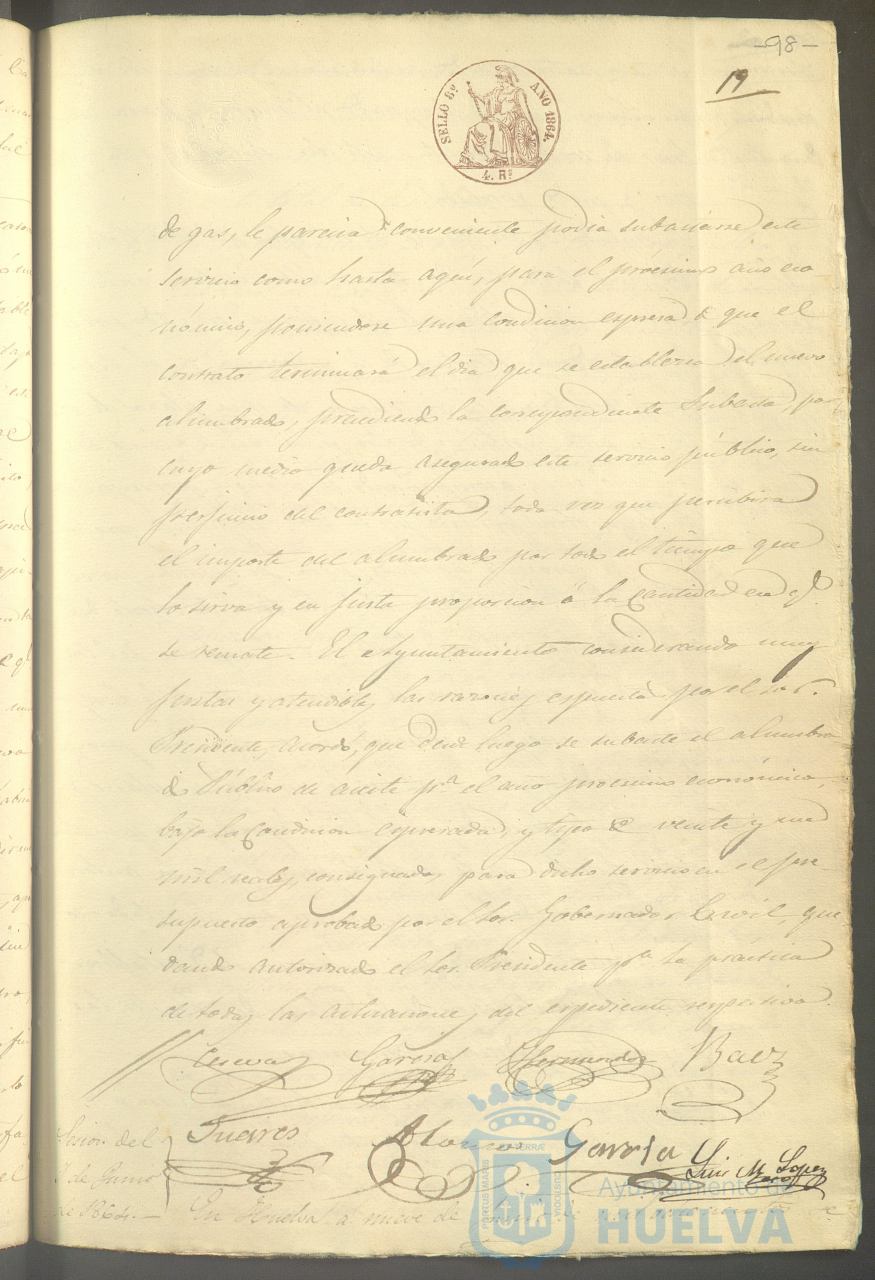 -98-
19
SELLO 8º AÑO 1864.
4. Rs
de gas, le parecia conveniente podia subastarse este
servicio como hasta aquí, para el prócsimo año eco
nómico, poniendose una condicion espresa de que el
contrato terminará el dia que se establezca el nuevo
alumbrado, precediendo la correspondiente Subasta, por
cuyo medio queda asegurado este servicio público, sin
perjuicio del contratista, toda vez que percibirá
el importe del alumbrado por todo el tiempo que
lo sirva y en justa proporcion á la Cantidad en q.
se remate. El Ayuntamiento considerando muy
justas y atendibles las razones espuestas por el Sor.
Presidente, acordó, que desde luego se subaste el alumbra
do Público de aceite pª el año procsimo económico,
bajo la Condicion espresada, y tipo de veinte y un
mil reales, consignados para dicho servicio en el pre-
supuesto aprobado por el Sor. Gobernador Civil, que
dando autorizado el Sor. Presidente pª la práctica
de todas las actuaciones del espediente respectivo.
Garcia Hernandez Baez
Suares Alonso Garcia Luis M. Lopez
Sesion del
9 de Junio
de 1864.- En Huelva á nueve de Junio de mil ochocientos
PORTUS MARIS ET TERRÆ CUSTODIA
Ayuntamiento de
HUELVA